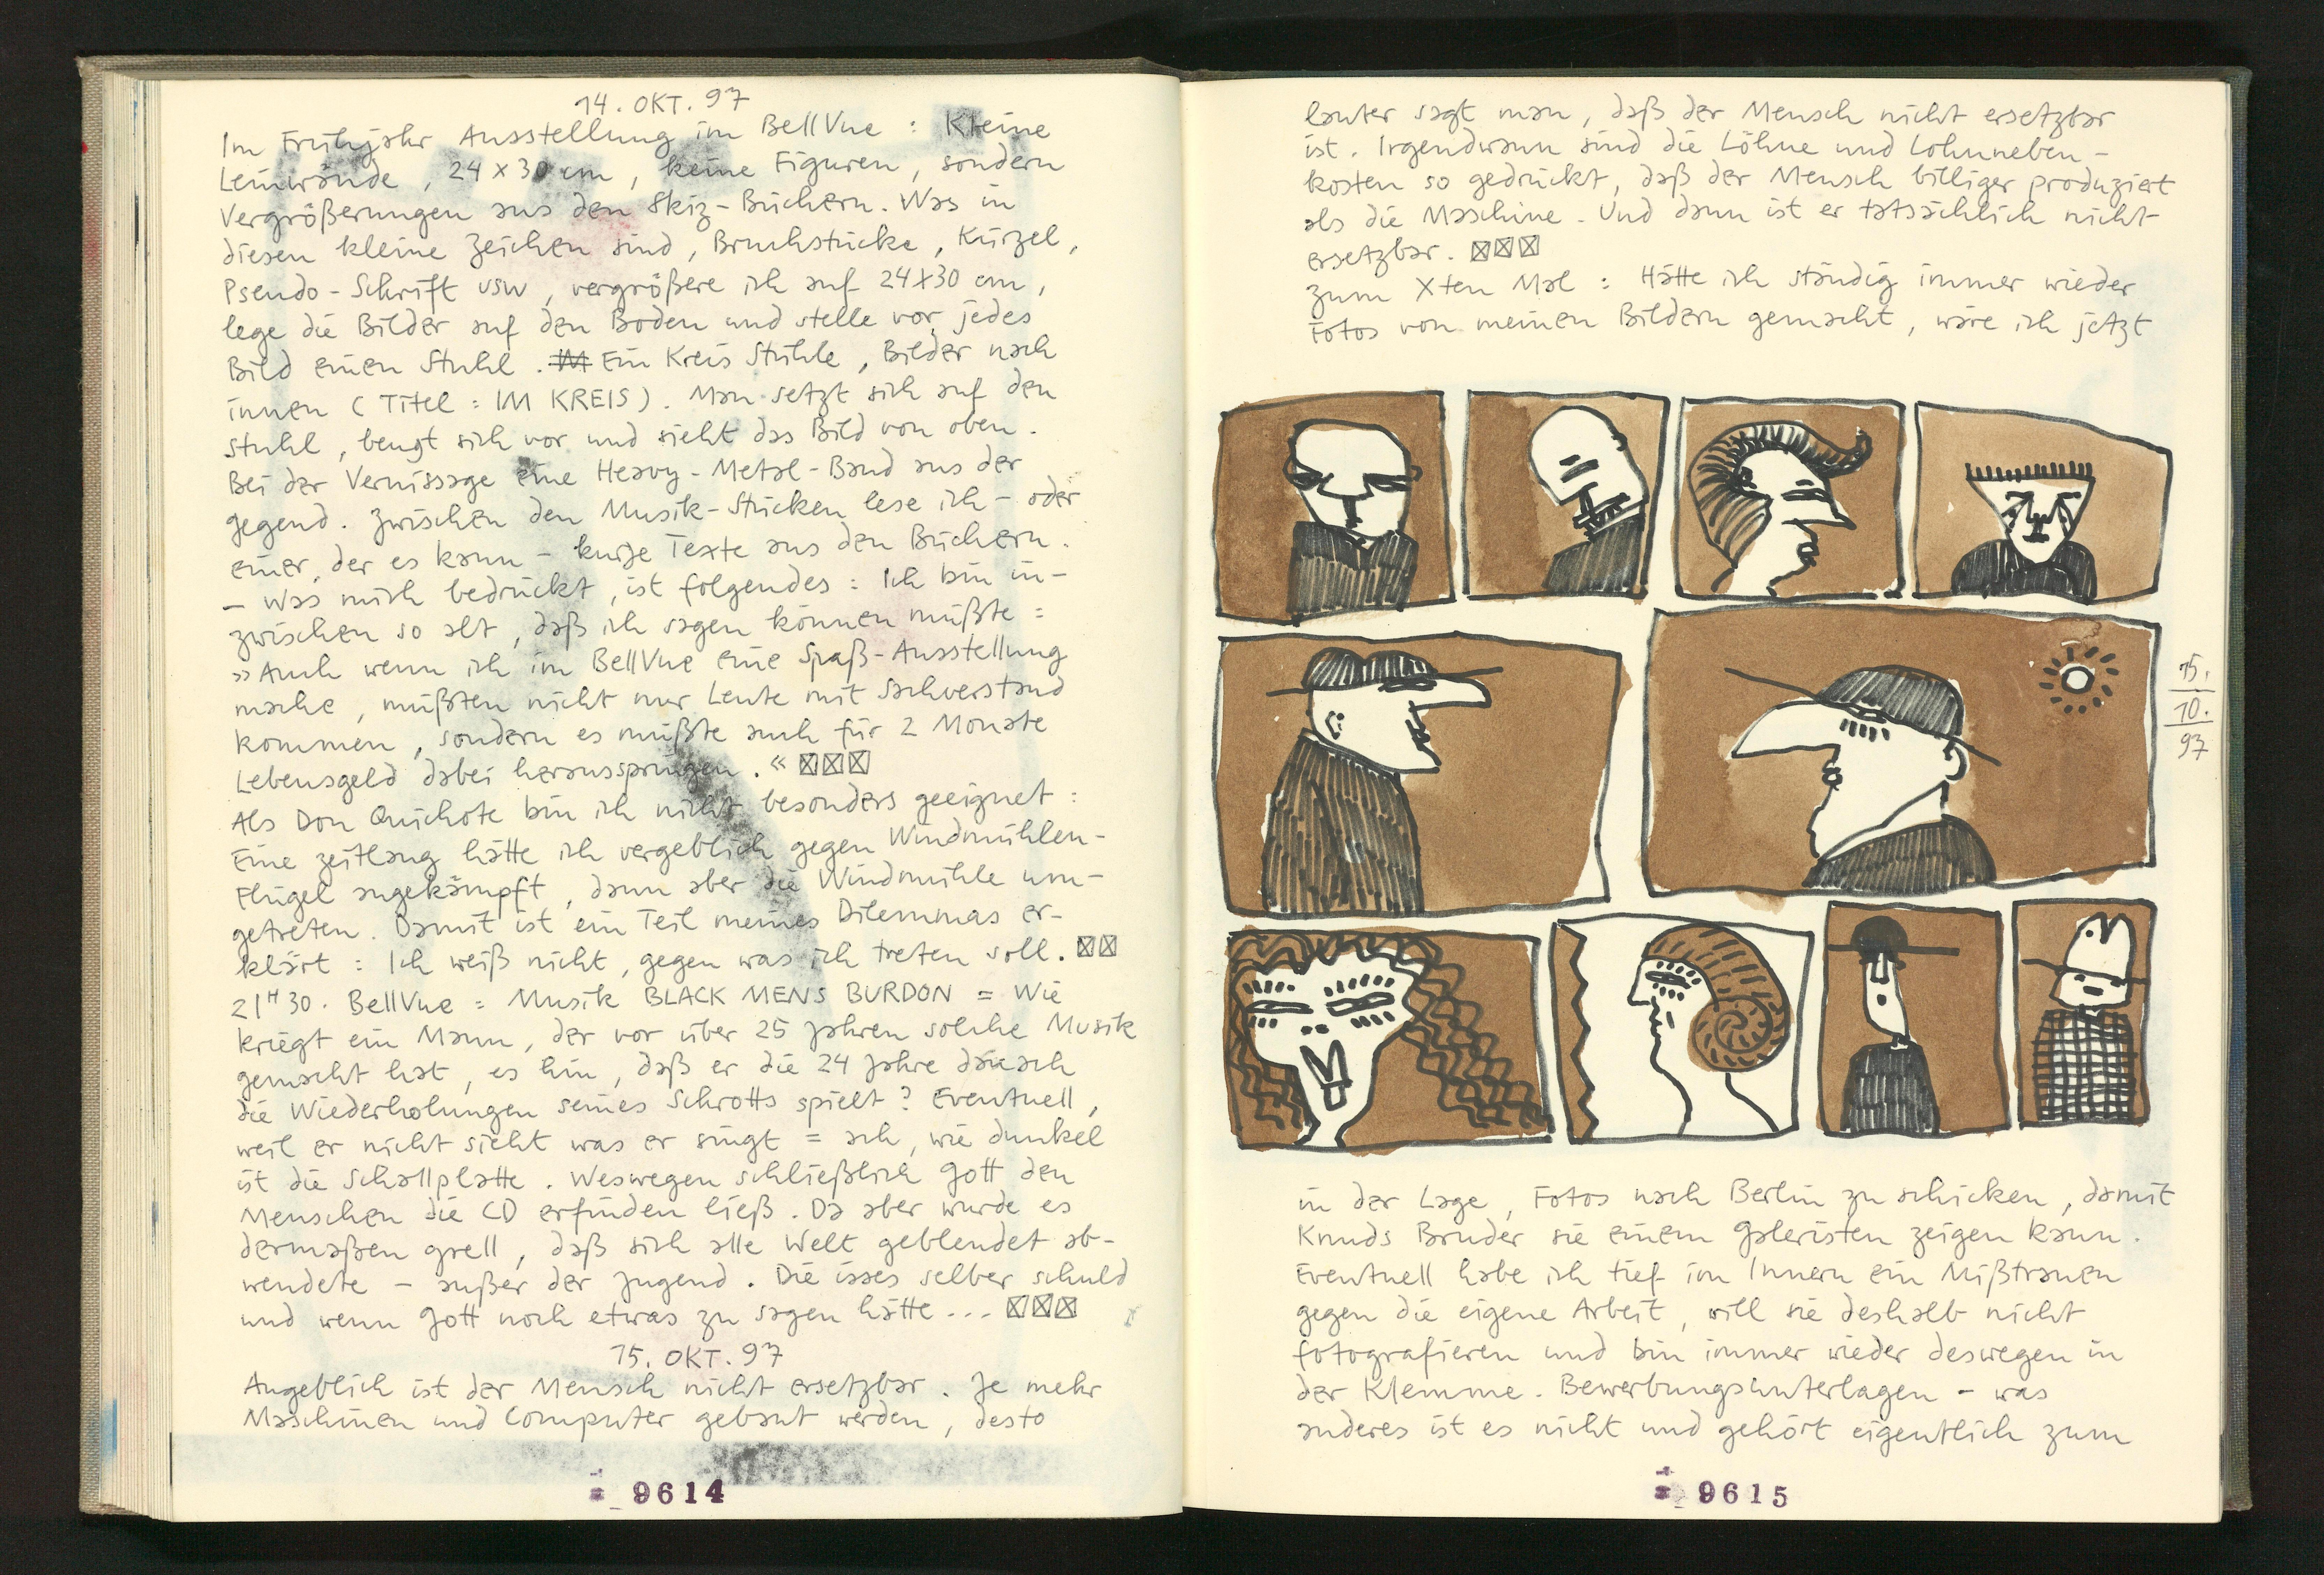 14. OKT. 97
Im Frühjahr Ausstellung im BellVue : Kleine
Leinwände, 24 x 30 cm, keine Figuren, sondern
Vergrößerungen aus den Skiz-Büchern. Was in
diesen kleine Zeichen sind, Bruchstücke, Kürzel,
Pseudo-Schrift usw, vergrößere ich auf 24x30 cm,
lege die Bilder auf den Boden und stelle vor jedes
Bild einen Stuhl. IM Ein Kreis Stühle, Bilder nach
innen (Titel : IM KREIS). Man setzt sich auf den
Stuhl, beugt sich vor und sieht das Bild von oben.
Bei der Vernissage eine Heavy-Metal-Band aus der
Gegend. Zwischen den Musik-Stücken lese ich - oder
einer, der es kann - kurze Texte aus den Büchern.
- Was mich bedrückt, ist folgendes : Ich bin in-
zwischen so alt, daß ich sagen können müßte :
»Auch wenn ich im BellVue eine Spaß-Ausstellung
mache, müßten nicht nur Leute mit Sachverstand
kommen, sondern es müßte auch für 2 Monate
Lebensgeld dabei herausspringen.« ☒☒☒
Als Don Quichote bin ich nicht besonders geeignet :
Eine Zeitlang hätte ich vergeblich gegen Windmühlen-
Flügel angekämpft, dann aber die Windmühle um-
getreten. Damit ist ein Teil meines Dilemmas er-
klärt : Ich weiß nicht, gegen was ich treten soll. ☒☒
21H30. BellVue = Musik BLACK MENS BURDON = Wie
kriegt ein Mann, der vor über 25 Jahren solche Musik
gemacht hat, es hin, daß er die 24 Jahre danach
die Wiederholungen seines Schrotts spielt? Eventuell,
weil er nicht sieht was er singt = ach, wie dunkel
ist die Schallplatte. Weswegen schließlich Gott den
Menschen die CD erfinden ließ. Da aber wurde es
dermaßen grell, daß sich alle Welt geblendet ab-
wendete - außer der Jugend. Die isses selber schuld
und wenn Gott noch etwas zu sagen hätte... ☒☒☒
15. OKT. 97
Angeblich ist der Mensch nicht ersetzbar. Je mehr
Maschinen und Computer gebaut werden, desto
9614
lauter sagt man, daß der Mensch nicht ersetzbar
ist. Irgendwann sind die Löhne und Lohnneben-
kosten so gedrückt, daß der Mensch billiger produziert
als die Maschine. Und dann ist er tatsächlich nicht
ersetzbar. ☒☒☒
Zum Xten Mal : Hätte ich ständig immer wieder
Fotos von meinen Bildern gemacht, wäre ich jetzt
15.
10.
97
in der Lage, Fotos nach Berlin zu schicken, damit
Knuds Bruder sie einem Galeristen zeigen kann.
Eventuell habe ich tief im Innern ein Mißtrauen
gegen die eigene Arbeit, will sie deshalb nicht
fotografieren und bin immer wieder deswegen in
der Klemme. Bewerbungsunterlagen - was
anderes ist es nicht und gehört eigentlich zum
9615